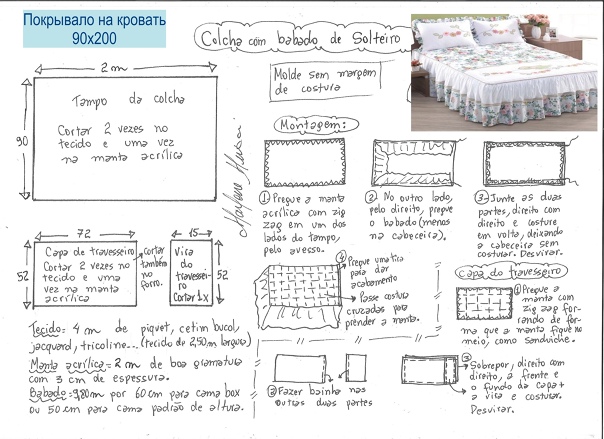 Покрывало на кровать
90x200
Colcha com babado de Solteiro
Molde sem margem
de costura
2 m
90
Tampo da colcha
Cortar 2 vezes no
tecido e uma vez
na manta acrílica
Montagem:
① Pregue a manta
acrílica com zig
zag em um dos
lados do tampo,
pelo avesso.
② No outro lado,
pelo direito, pregue
o babado (menos
na cabeceira).
③ Junte as duas
partes, direito com
direito e costure
em volta, deixando
a cabeceira sem
costurar. Desvirar.
72
52
Capa de travesseiro
Cortar 2 vezes no
tecido e uma
vez na manta
acrílica
cortar
também
no
forro.
15
52
Vira
do
travessei
ro
Cortar 1x
④ Pregue uma tira
para dar
acabamento
Passe costura
cruzadas para
prender a manta.
Capa do travesseiro
① Pregue a
manta com
zig zag for-
rando de for-
ma que a manta fique no
meio, como sanduíche.
② Fazer bainha nas
outras duas partes
③ Sobrepor, direito com
direito, a frente e
o fundo da capa +
a vira e costurar.
Desvirar.
Tecido = 4 m de piquet, cetim bucol,
jacquard, tricoline... (tecido de 2,50m largura)
Manta acrílica = 2m de boa gramatura
com 3 cm de espessura.
Babado = 9,80m por 60 cm para cama box
ou 50 cm para cama padrão de altura.